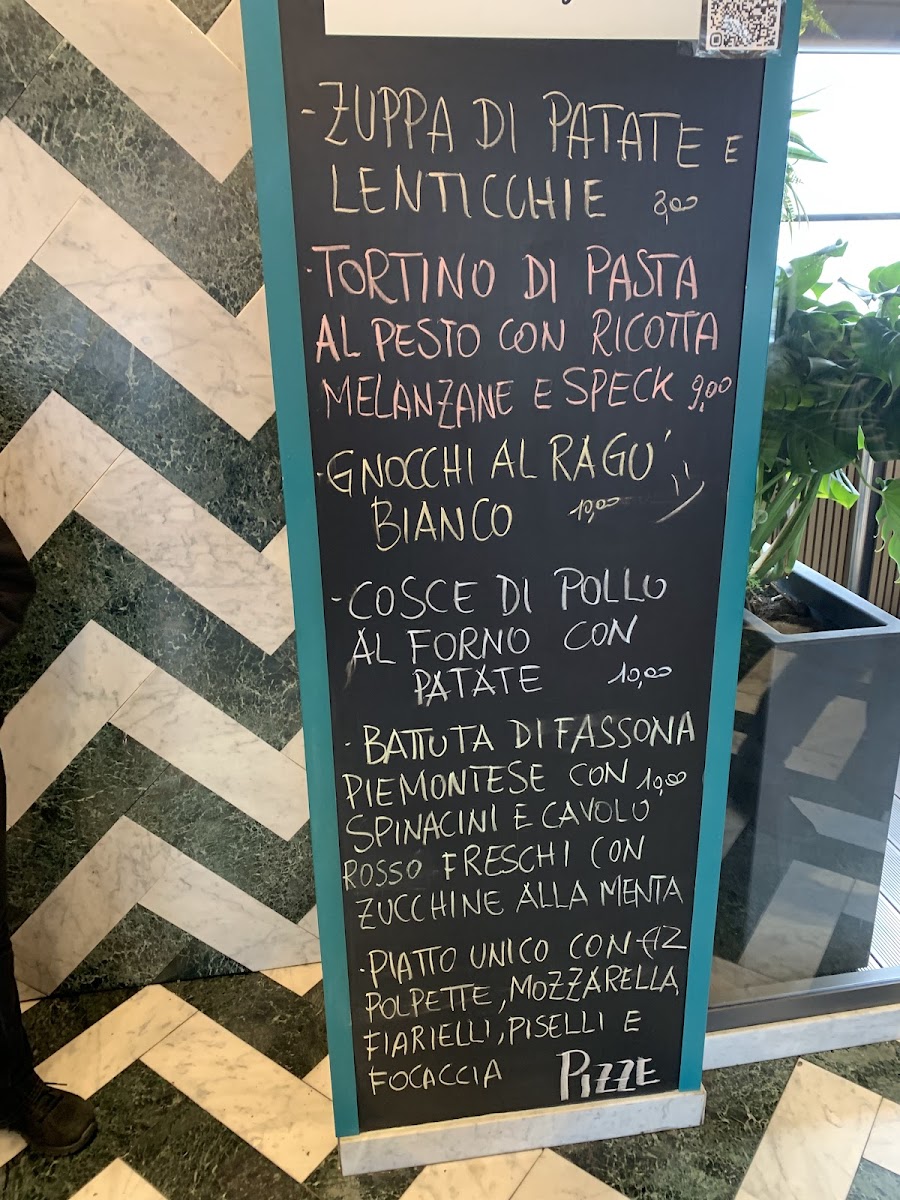 - ZUPPA DI PATATE E
LENTICCHIE 8,00
· TORTINO DI PASTA
AL PESTO CON RICOTTA
MELANZANE E SPECK 9,00
· GNOCCHI AL RAGU'
BIANCO 10,00
- COSCE DI POLLO
AL FORNO CON
PATATE 10,00
· BATTUTA DI FASSONA
PIEMONTESE CON 10,00
SPINACINI E CAVOLO
ROSSO FRESCHI CON
ZUCCHINE ALLA MENTA
· PIATTO UNICO CON €12
POLPETTE, MOZZARELLA,
FIARIELLI, PISELLI E
FOCACCIA PIZZE